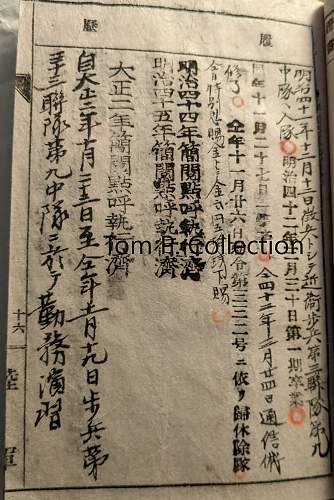 履
歴
明治四十一年十二月十二日徴兵トシテ近衛歩兵第三聯隊第九
中隊ヘ入隊 明治四十二年 月三十日第一期卒業
同年十一月二十七日一等卒 仝四十三年三月廿四日通信術
修了 仝年十一月廿六日 令第三三一号ニ依リ歸休除隊
明治四十四年簡閲點呼執行濟
明治四十五年簡閲點呼執行濟
大正二年簡閲點呼執行濟
自大正三年十月二十三日至仝年十一月十九日歩兵第
聯隊第九中隊ニ於テ勤務演習
十六
陸
軍
Tom H.Collection